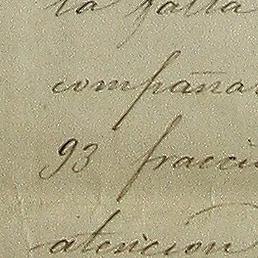 la falta
compañar
93 fracci
atencion